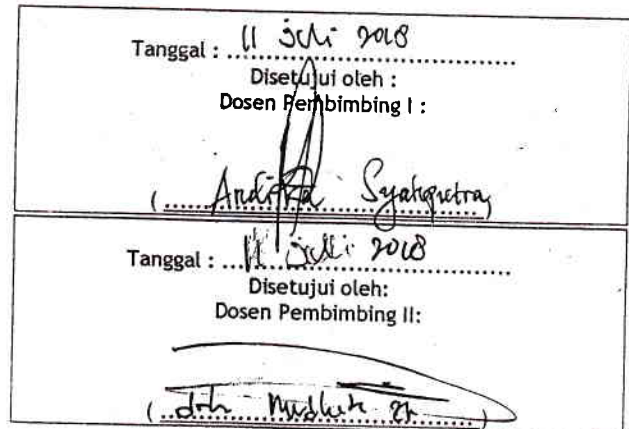 Tanggal : 11 Juli 2018
Disetujui oleh :
Dosen Pembimbing I :
( Andika Syahputra )
Tanggal : 11 Juli 2018
Disetujui oleh:
Dosen Pembimbing II:
( )